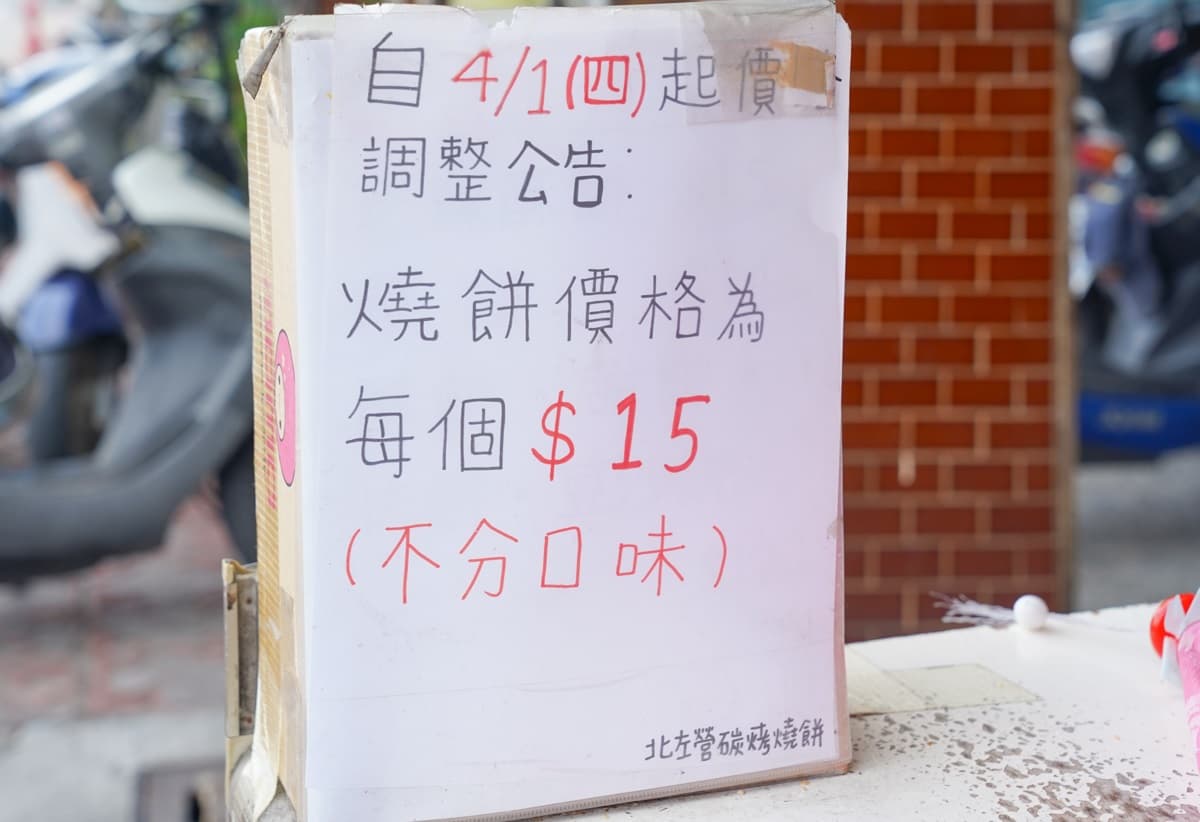 自4/1(四)起價
調整公告:
燒餅價格為
每個$15
(不分口味)
北左營碳烤燒餅